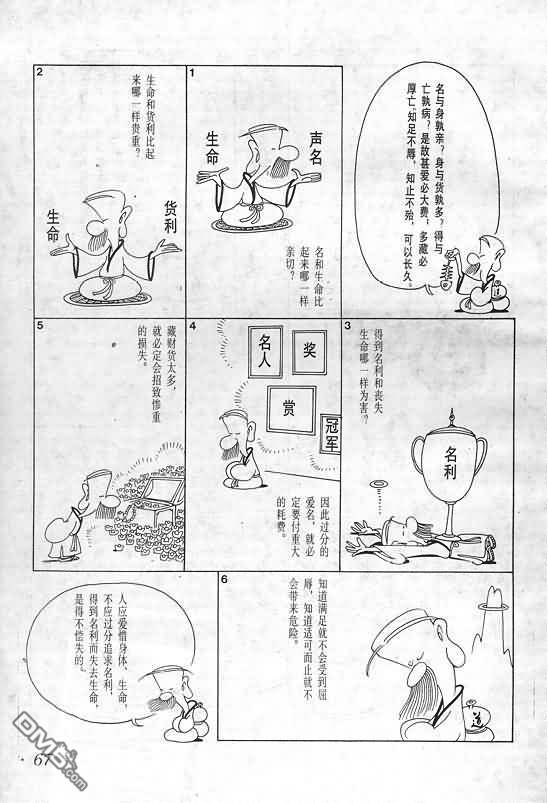 名与身孰亲？身与货孰多？得与
亡孰病？是故甚爱必大费；多藏必
厚亡。知足不辱，知止不殆，可以长久。
1
声名
生命
名和生命比
起来哪一样
亲切？
2
生命和货利比起
来哪一样贵重？
货利
生命
3
得到名利和丧失
生命哪一样为害？
名利
4
名人
奖
赏
冠军
因此过分的
爱名，就必
定要付重大
的耗费。
5
藏财货太多，
就必定会招致惨重
的损失。
6
知道满足就不会受到屈
辱，知道适可而止就不
会带来危险。
道
人应爱惜身体、生命，
不应过分追求名利，
得到名利而失去生命，
是得不偿失的。
67